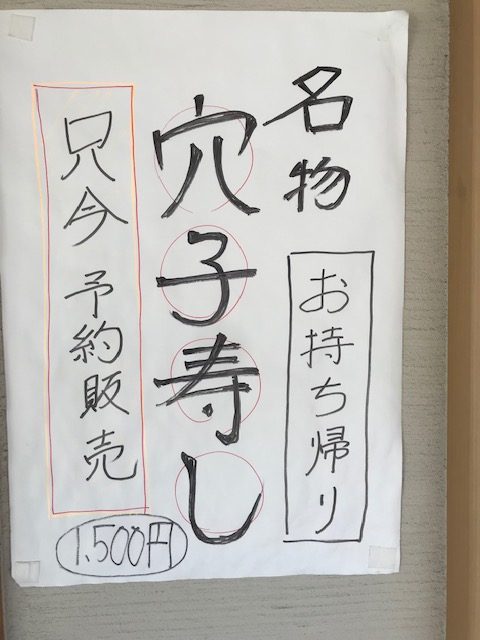 名物
お持ち帰り
穴子寿し
只今 予約販売
1,500円